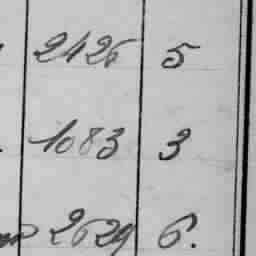 2426 5
1083 3
2629 6.